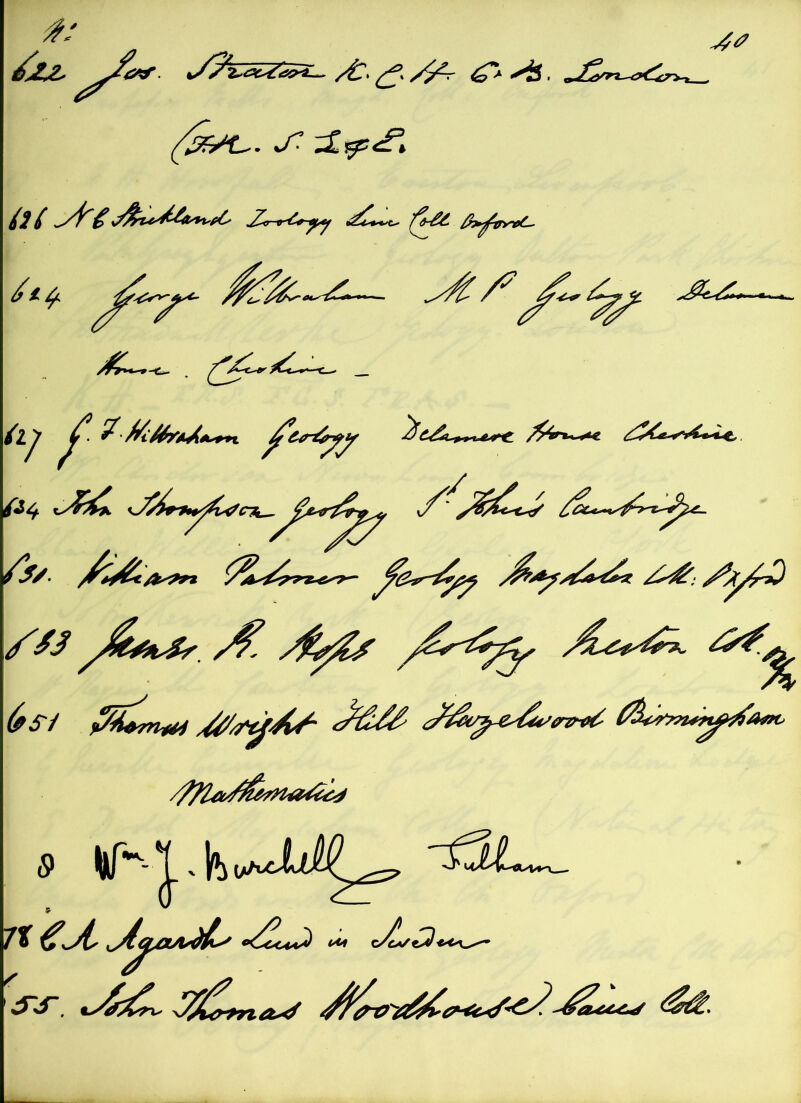 No. 40
622 Jos. Straton K. C. H. C. B. London
(F.R. S. L & E.
626 N E Strickland Zoology Linc Coll Oxford
624 George Wilbraham M P Geology Delamere
House. Cheshire _
627 G. F. Wilbraham Geology Delamere House Cheshire
634 John Thompson Geology St. John's Cambridge
630. William Palmer Geology Magdalen Coll: Oxford
633 James. R. Hope Geology Merton Coll. Oxford
651 Thomas Wright Hill Hazelwood Birmingham
Mathematics
8 Wm. J. Burchell Fulham
78 C A Agardh Lund in Sweden
655. John Thomas Woodhouse. Caius Coll.